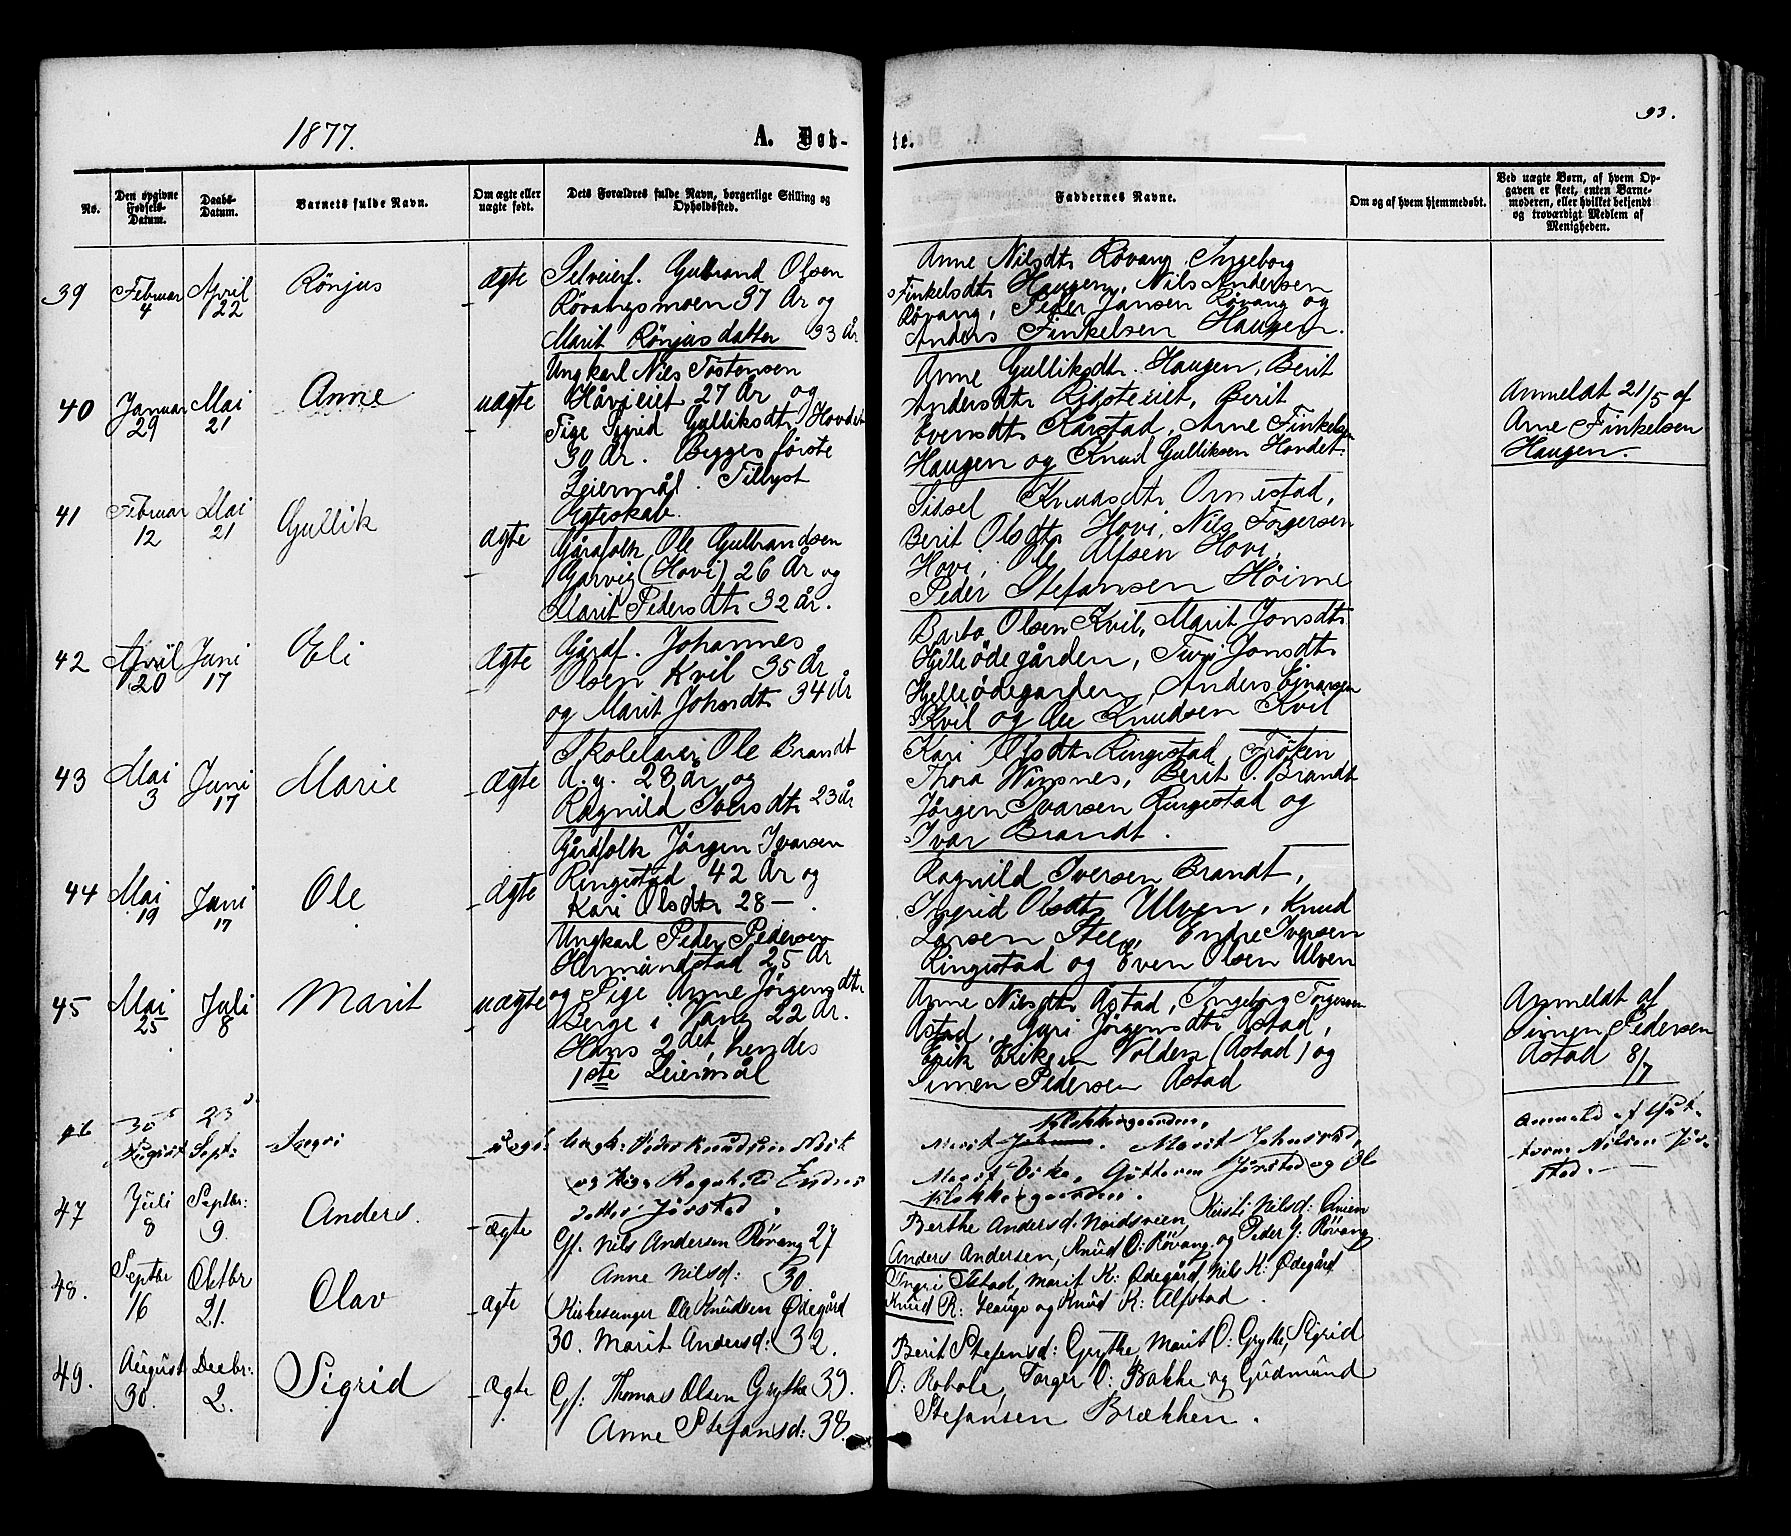 1877.
A. Døb-
te.
93.
No.
Den opgivne Fødsels-Datum.
Daabs-Datum.
Barnets fulde Navn.
Om ægte eller uægte født.
Dets Forældres fulde Navn, borgerlige Stilling og Opholdssted.
Faddernes Navne.
Om og af hvem hjemmedøbt.
Ved uægte Børn, af hvem Op-
gaven er skeet, enten Barne-
moderen, eller hvilket bekjendt
og troværdigt Medlem af
Menigheden.
39 Februar 4 April 22 Rönjus ægte
Selveierf. Gulbrand Olsen
Rövangsmoen 37 År og
Marit Rönjusdatter 33 år
Anne Nilsdtr Røvang, Ingeborg
Finkelsdtr Haugen, Nils Andersen
Røvang, Peder Jansen Røvang og
Anders Finkelsen Haugen.
40 Januar 29 Mai 21 Anne uægte
Ungkarl Nils Tostensen
27 År og
Pige Sigrid Gulliksdtr Hovdet
30 År. Begges første
Leiermål. Tillyst
Ægteskab.
Anne Gulliksdtr. Haugen, Berit
Andersdtr Berit
Evensdtr Kårstad, Arne Finkelsen
Haugen og Knud Gulliksen Hovdet.
Anmeldt 21/5 af
Arne Finkelsen
Haugen.
41 Februar 12 Mai 21 Gullik ægte
Gårdfolk Ole Gulbrandsen
Garvig (Hovi) 26 År og
Marit Pedersdtr 32 år.
Sidsel Knudsdtr
Berit Olsdtr Hovi, Nils Torgersen
Hovi, Ole Alfsen Hovi,
Peder Stefansen Höime
42 April 20 Juni 17 Eli ægte
Gårdf. Johannes
Olsen Kvil 35 År
og Marit Johnsdtr 34 år
Barbo Olsen Kvil, Marit Jonsdtr
Hjelleödegården, Turi Jonsdtr
Hjelleödegården, Anders Ejnarsen
Kvil og Ole Knudsen Kvil
43 Mai 3 Juni 17 Marie ægte
Skolelærer Ole Brandt
d. y. 23 år og
Ragnild Iversdtr 23 år
Kari Olsdtr Ringestad, Frøken
Thora Winsnes, Berit O. Brandt
Jørgen Ivarsen Ringestad og
Ivar Brandt.
44 Mai 19 Juni 17 Ole ægte
Gårdfolk Jörgen Ivarsen
Ringestad, 42 År og
Kari Olsdtr 28 —.
Ragnild Iversen Brandt,
Ingrid Olsdtr Ulven, Knud
Larsen Steen, Endre Iversen
Ringestad og Even Olsen Ulven
45 Mai 25 Juli 8 Marit uægte
Ungkarl Peder Pedersen
Hermundstad 25 År
og Pige Anne Jörgensdtr
Berge i Vang 22 År.
Hans 2det, hendes
1ste Leiermål
Anne Nilsdtr Åstad, Ingeborg
Åstad, Guri Jörgensdtr Åstad,
Erik Eriksen Volden (Åstad) og
Simen Pedersen Åstad
Anmeldt af
Simen Pedersen
Åstad 8/7
46 30 August 23 Sept: uægt
Ungk: Peder Knudsen
og Pige Ragnhild Endres
datter Jörstad.
Klokkergaarden,
Marit Marit Johnstad,
Marit Vike, Guttorm Jörstad og Ol
Klokkergaarden.
Anmeldt af Gut-
torm Nilsen Jör-
stad.
47 Juli 8 Septbr: 9. Anders. ægte
Gf. Nils Andersen Rövang 27
Anne Nilsd: 30.
Berthe Andersd: Nordsveen, Kirsti Nilsd:
Anders Andersen, Knud O: Rövang og Peder J: Rövang
48. Septbr 16 Oktbr 21. Olav ægte
Kirkesanger Ole Knudsen Ödegård
30. Marit Andersd: 32.
Ingri Marit K: Ödegård, Nils K: Ödegård
Knud R: Hauge og Knud K: Alfstad.
49. August 30. Decbr: 2. Sigrid ægte
Gf: Thomas Olsen Grythe 39.
Anne Stefansd: 38.
Berit Stefansd: Grythe, Marit O: Grythe, Sigrid
O: Robole, Torger O: Bakke og Gudmund
Stefansen Brækken.